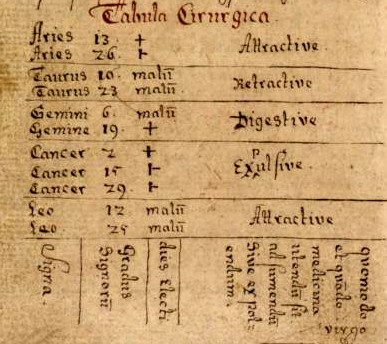 Tabula Cirurgica.
Aries 13 +
Aries 26 + Attractive.
Taurus 10. malū
Taurus 23 malū Retractive
Gemini 6. malū
Gemine 19. + Digestive
Cancer 2 +
Cancer 15 + Expulsive.
Cancer 29. +
Leo 12 malū
Leo 25 malū Attractive
Signa.
Gradus
Signorū
dies Electi
quomodo
et quādo
medicina
utendū sit
ad sumendū
Sive ex
endum.
virgo